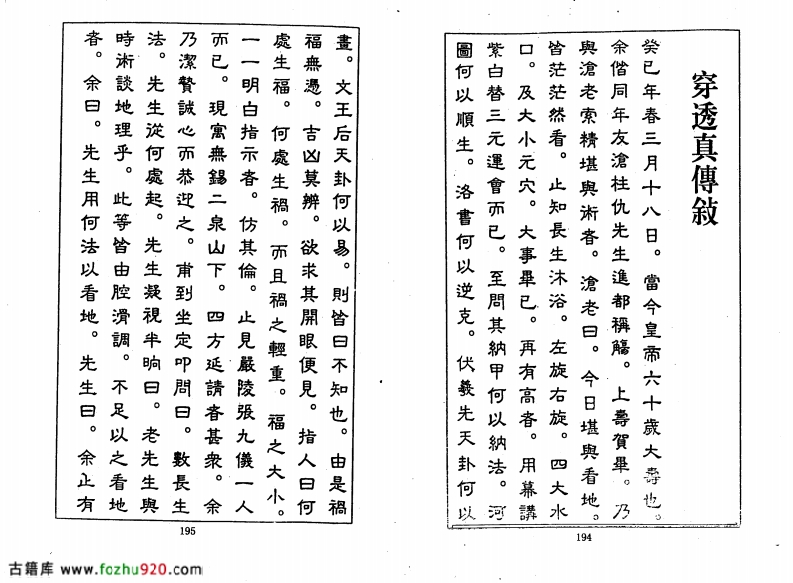 穿透真傳敍
癸巳年春三月十八日。當今皇帝六十歲大壽也。
余偕同年友滄柱仇先生進都稱觴。上壽賀畢。乃
與滄老索精堪輿術者。滄老曰。今日堪輿看地。
皆茫茫然看。止知長生沐浴。左旋右旋。四大水
口。及大小元穴。大事畢已。再有高者。用幕講
紫白替三元運會而已。至問其納甲何以納法。河
圖何以順生。洛書何以逆克。伏羲先天卦何以
194
畫。文王后天卦何以易。則皆曰不知也。由是禍
福無憑。吉凶莫辨。欲求其開眼便見。指人曰何
處生福。何處生禍。而且禍之輕重。福之大小。
一一明白指示者。仿其倫。止見嚴陵張九儀一人
而已。現寓無錫二泉山下。四方延請者甚衆。余
乃潔贄誠心而恭迎之。甫到坐定叩問曰。數長生
法。先生從何處起。先生凝視半晌曰。老先生與
時術談地理乎。此等皆由腔滑調。不足以之看地
者。余曰。先生用何法以看地。先生曰。余止有
195
古籍库 www.fozhu920.com